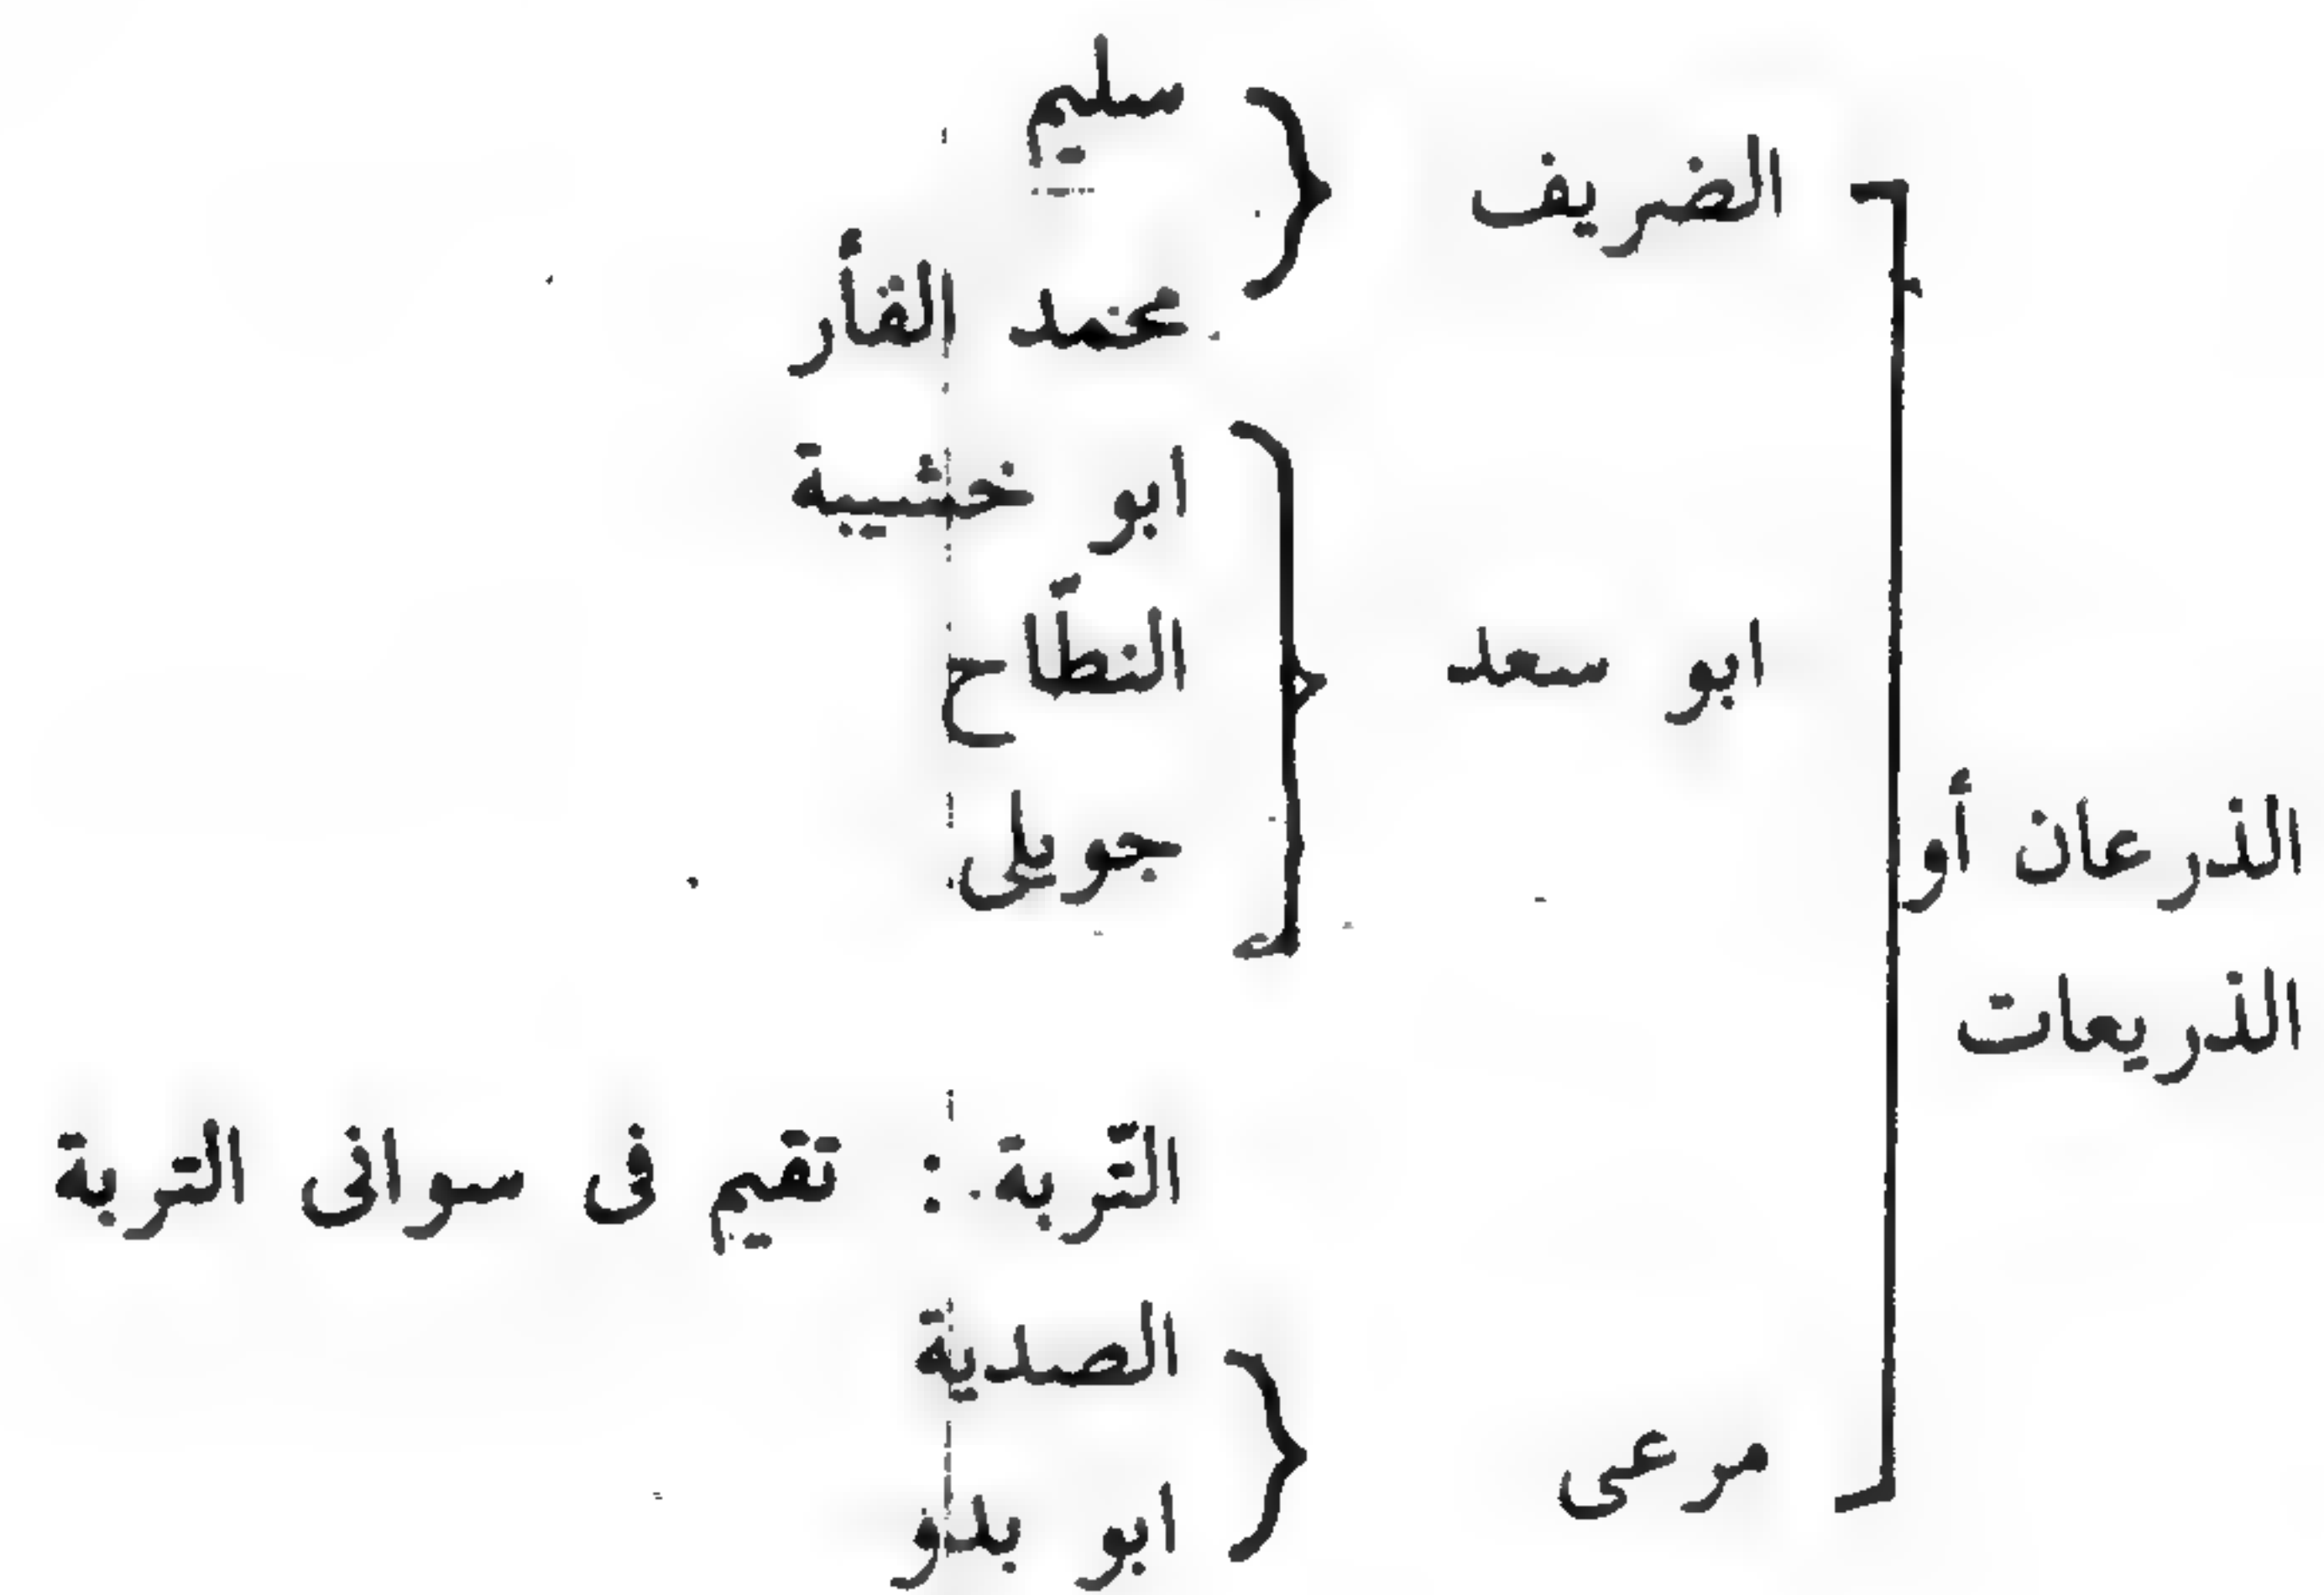 الذرعان أو
الذريعات
الضريف
سليم
محمد الفأر
ابو سعد
ابو خشيبة
النطّاح
جويلى
التّربة : تقيم فى سوانى التربة
مرعى
الصدية
ابو بدو